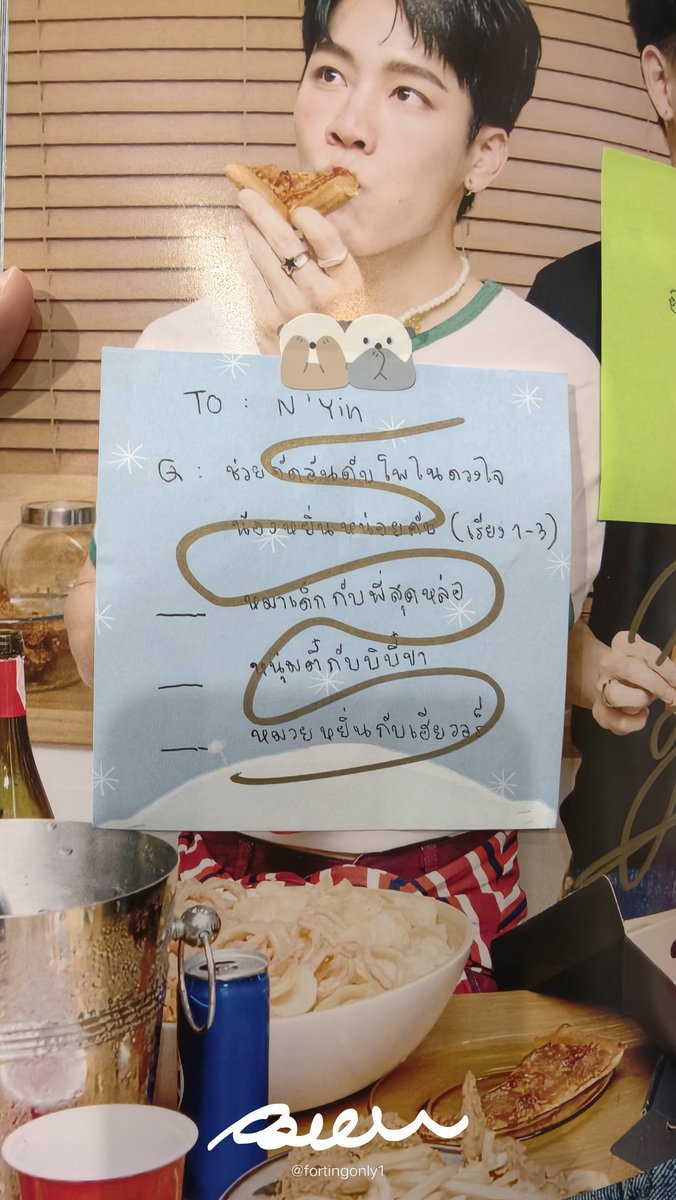 TO : N'Yin
Q : ช่วยจัดอันดับโพในดวงใจ
น้องหยิ่นหน่อยคับ (เรียง 1-3)
___ หมาเด็กกับพี่สุดหล่อ
___ หนุ่มตี๋กับบิบี๋ขา
___ หมวยหยิ่นกับเฮียวอร์
@fortingonly1